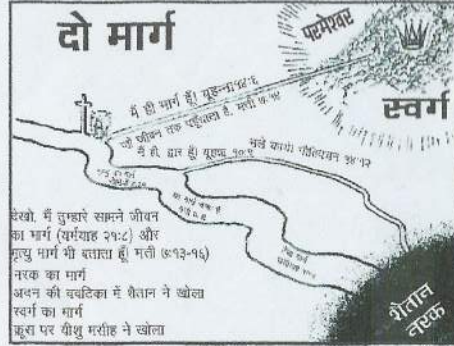 दो मार्ग
परमेश्वर
स्वर्ग
मैं ही मार्ग हूँ। यूहन्ना १४:६
जो जीवन तक पहुँचाता है, मत्ती ७:१४
मैं ही, द्वार हूँ। यूहन्ना १०:९
भले कार्य नीतिवचन १४:१२
देखो, मैं तुम्हारे सामने जीवन
का मार्ग (यर्मियाह २१:८) और
मृत्यु मार्ग भी बताता हूँ। मती (७:१३-१६)
नरक का मार्ग
अदन की वाटिका में शैतान ने खोला
स्वर्ग का मार्ग
क्रूस पर यीशु मसीह ने खोला
शैतान
नरक